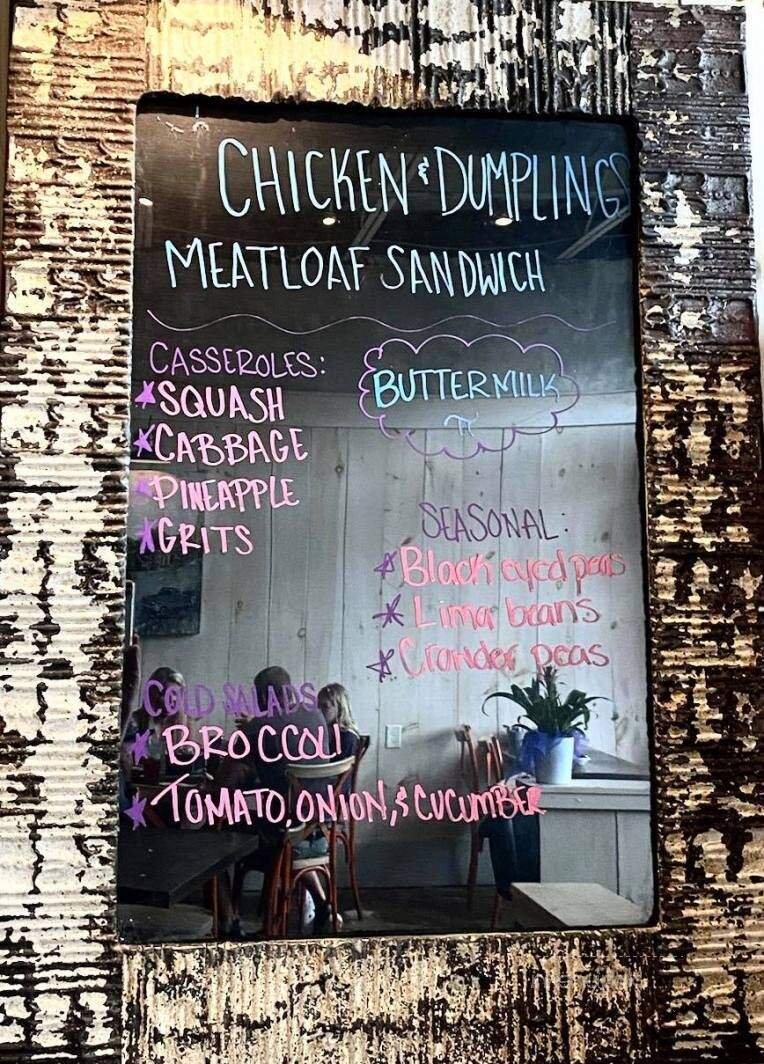 CHICKEN & DUMPLINGS
MEATLOAF SANDWICH
CASSEROLES:
SQUASH
CABBAGE
PINEAPPLE
GRITS
BUTTERMILK
π
SEASONAL:
Black eyed peas
Lima beans
Crowder peas
COLD SALADS
BROCCOLI
TOMATO, ONION, & CUCUMBER